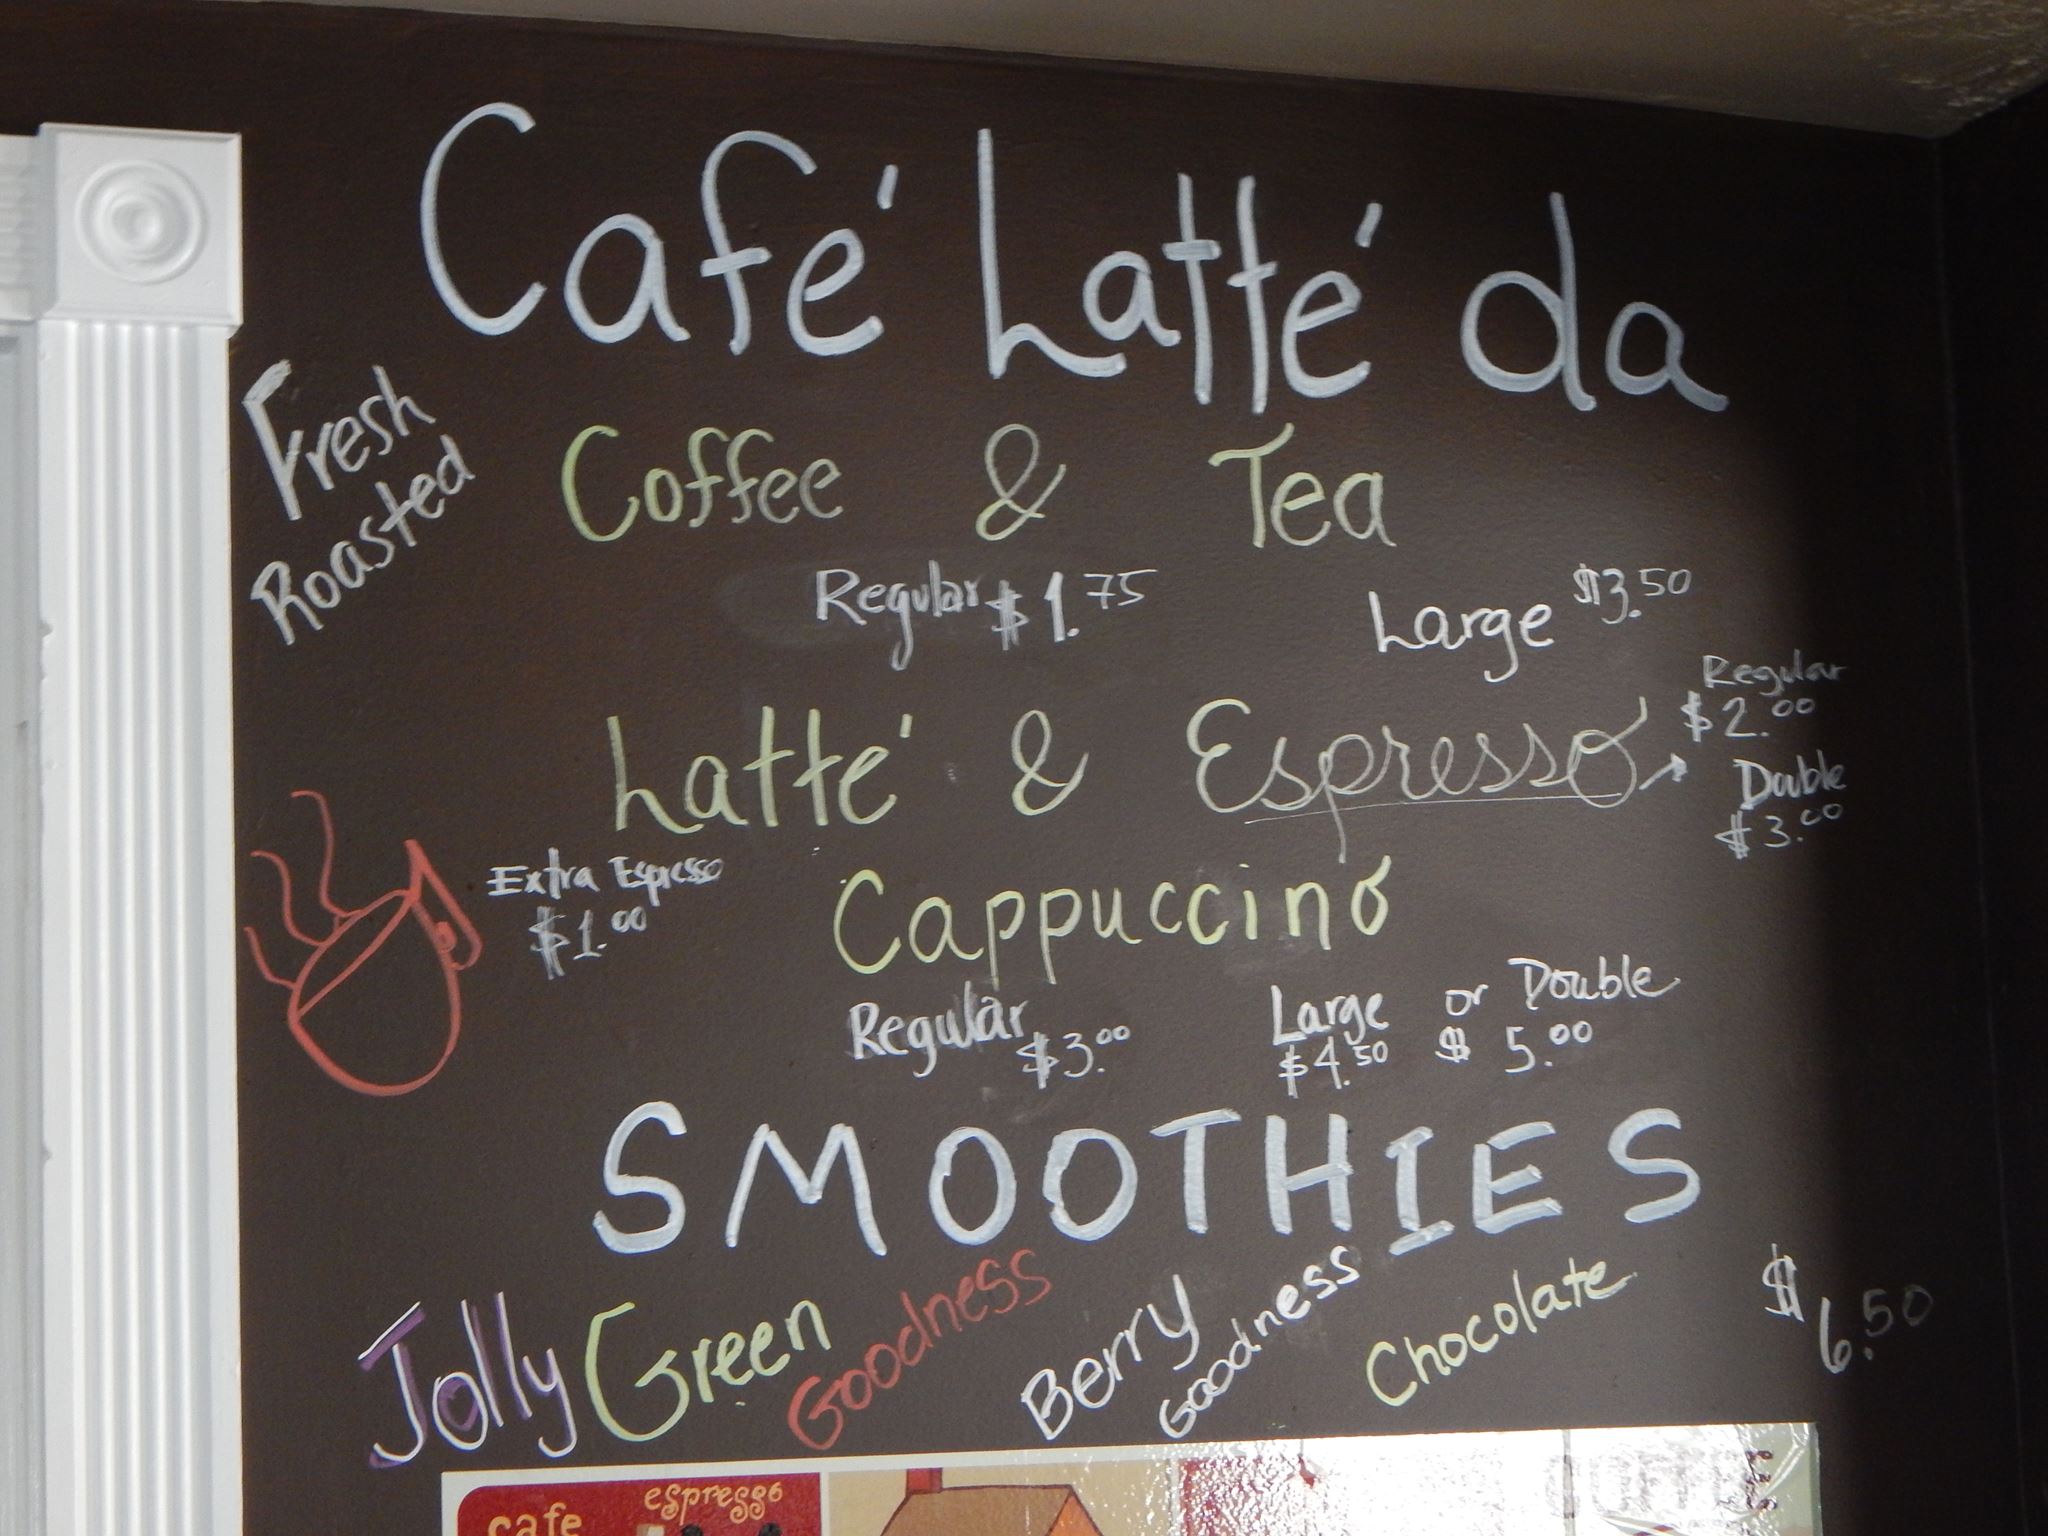 Café Latté da
Fresh
Roasted
Coffee & Tea
Regular $1.75
Large $3.50
Latté & Espresso
Regular
$2.00
Double
$3.00
Extra Espresso
$1.00
Cappuccino
Regular $3.00
Large
$4.50
or Double
$5.00
SMOOTHIES
Jolly Green Goodness
Berry
Goodness
Chocolate
$6.50
espresso
cafe